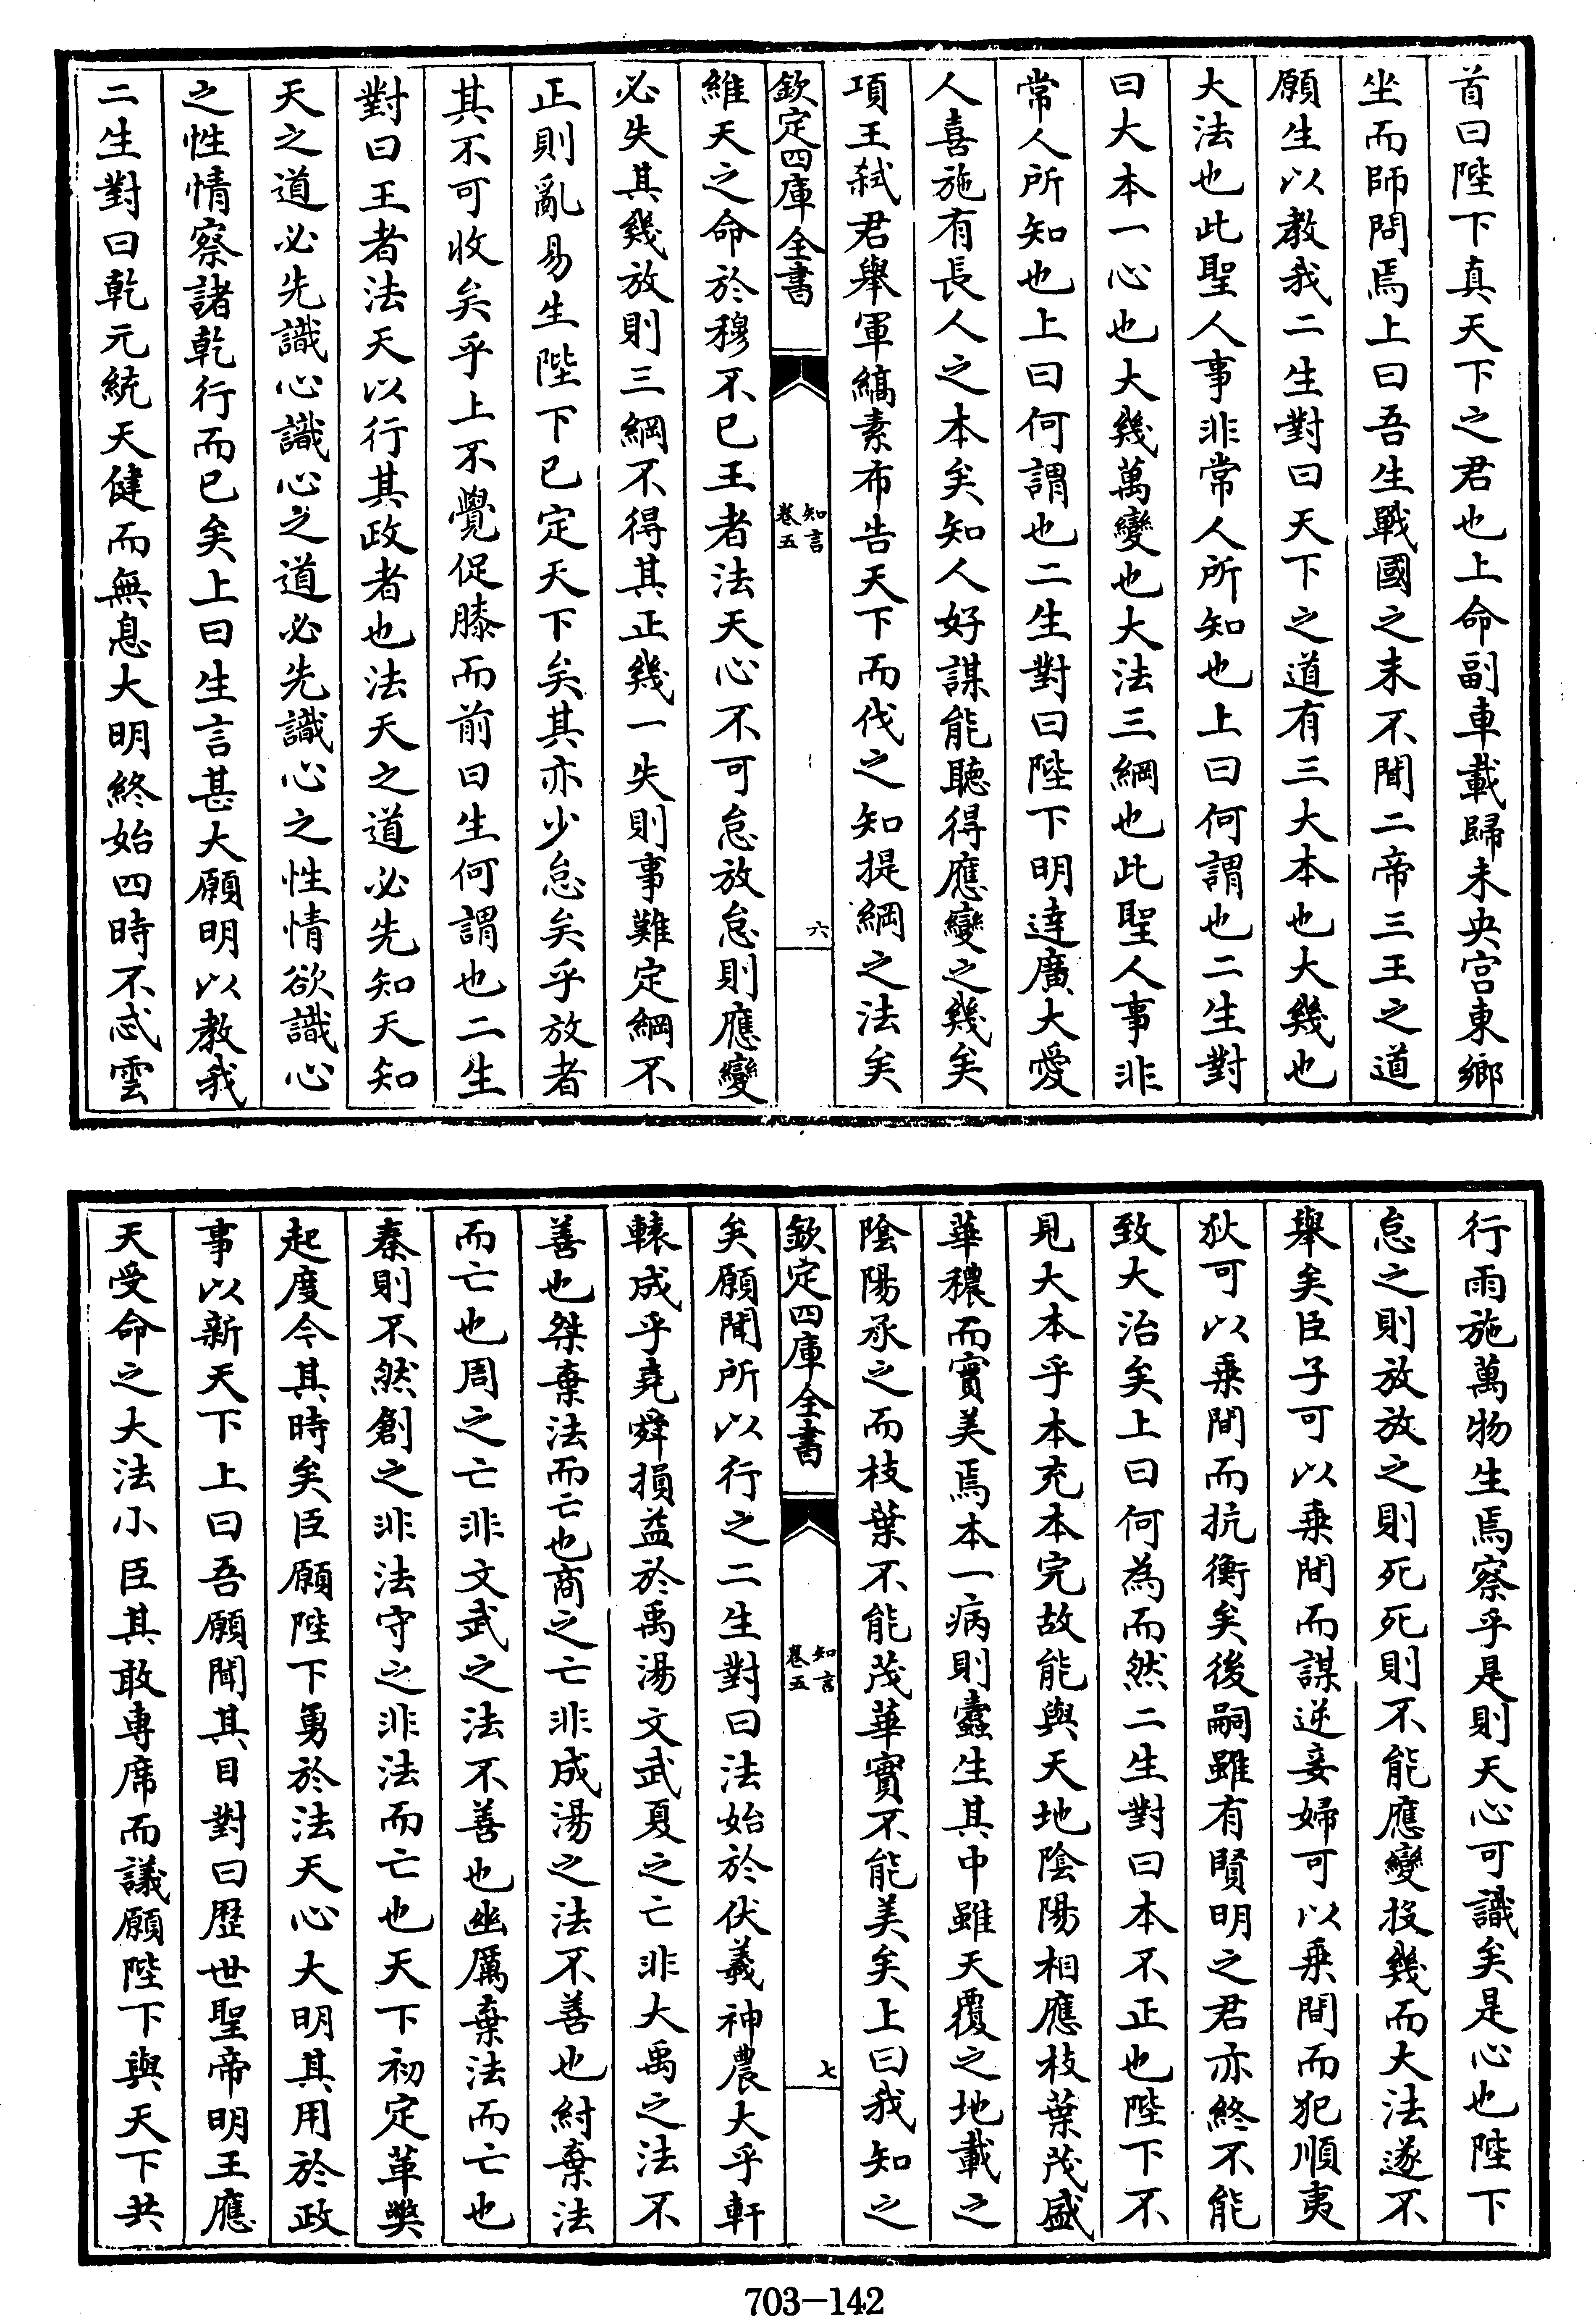 首曰陛下真天下之君也上命副車載歸未央宫東鄉
坐而師問焉上曰吾生戰國之末不聞二帝三王之道
願生以教我二生對曰天下之道有三大本也大幾也
大法也此聖人事非常人所知也上曰何謂也二生對
曰大本一心也大幾萬變也大法三綱也此聖人事非
常人所知也上曰何謂也二生對曰陛下明達廣大愛
人喜施有長人之本矣知人好謀能聽得應變之幾矣
項王弑君舉軍縞素布告天下而伐之知提綱之法矣
欽定四庫全書
知言
卷五
六
維天之命於穆不已王者法天心不可怠放怠則應變
必失其幾放則三綱不得其正幾一失則事難定綱不
正則亂易生陛下已定天下矣其亦少怠矣乎放者
其不可收矣乎上不覺促膝而前曰生何謂也二生
對曰王者法天以行其政者也法天之道必先知天知
天之道必先識心識心之道必先識心之性情欲識心
之性情察諸乾行而已矣上曰生言甚大願明以教我
二生對曰乾元統天健而無息大明終始四時不忒雲
行雨施萬物生焉察乎是則天心可識矣是心也陛下
怠之則放放之則死死則不能應變投幾而大法遂不
舉矣臣子可以乗間而謀逆妾婦可以乗間而犯順夷
狄可以乗間而抗衡矣後嗣雖有賢明之君亦終不能
致大治矣上曰何為而然二生對曰本不正也陛下不
見大本乎本充本完故能與天地陰陽相應枝葉茂盛
華穠而實美焉本一病則蠧生其中雖天覆之地載之
陰陽承之而枝葉不能茂華實不能美矣上曰我知之
欽定四庫全書
知言
卷五
七
矣願聞所以行之二生對曰法始於伏羲神農大乎軒
轅成乎堯舜損益於禹湯文武夏之亡非大禹之法不
善也桀棄法而亡也商之亡非成湯之法不善也紂棄法
而亡也周之亡非文武之法不善也幽厲棄法而亡也
秦則不然創之非法守之非法而亡也天下初定革獘
起度今其時矣臣願陛下勇於法天心大明其用於政
事以新天下上曰吾願聞其目對曰歴世聖帝明王應
天受命之大法小臣其敢専席而議願陛下與天下共
703-142